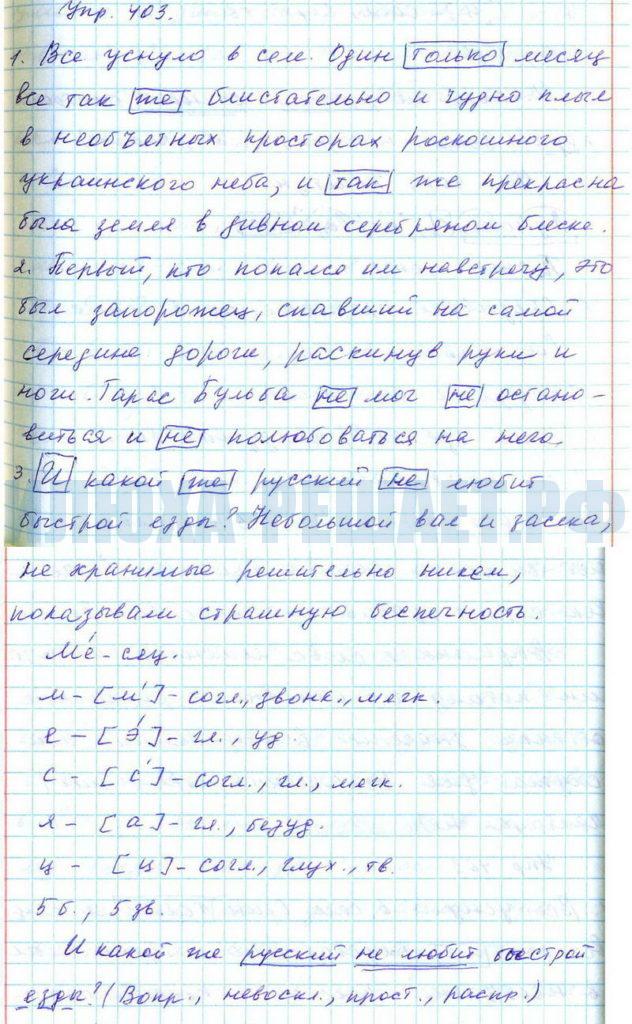 Упр. 403.
1. Все уснуло в селе. Один только месяц
все так же блистательно и чудно плыл
в необъятных просторах роскошного
украинского неба, и так же прекрасна
была земля в дивном серебряном блеске.
2. Первый, кто попался им навстречу, это
был запорожец, спавший на самой
середине дороги, раскинув руки и
ноги. Тарас Бульба не мог не остано-
виться и не полюбоваться на него.
3. И какой же русский не любит
быстрой езды? Небольшой вал и засека,
не хранимые решительно никем,
показывали страшную беспечность.
Ме́ - сяц.
м - [м'] - согл., звонк., мягк.
е - [э́] - гл., уд.
с - [с'] - согл., гл., мягк.
я - [а] - гл., безуд.
ц - [ц] - согл., глух., тв.
5 б., 5 зв.
И какой же русский не любит быстрой
езды? (Вопр., невоскл., прост., распр.)